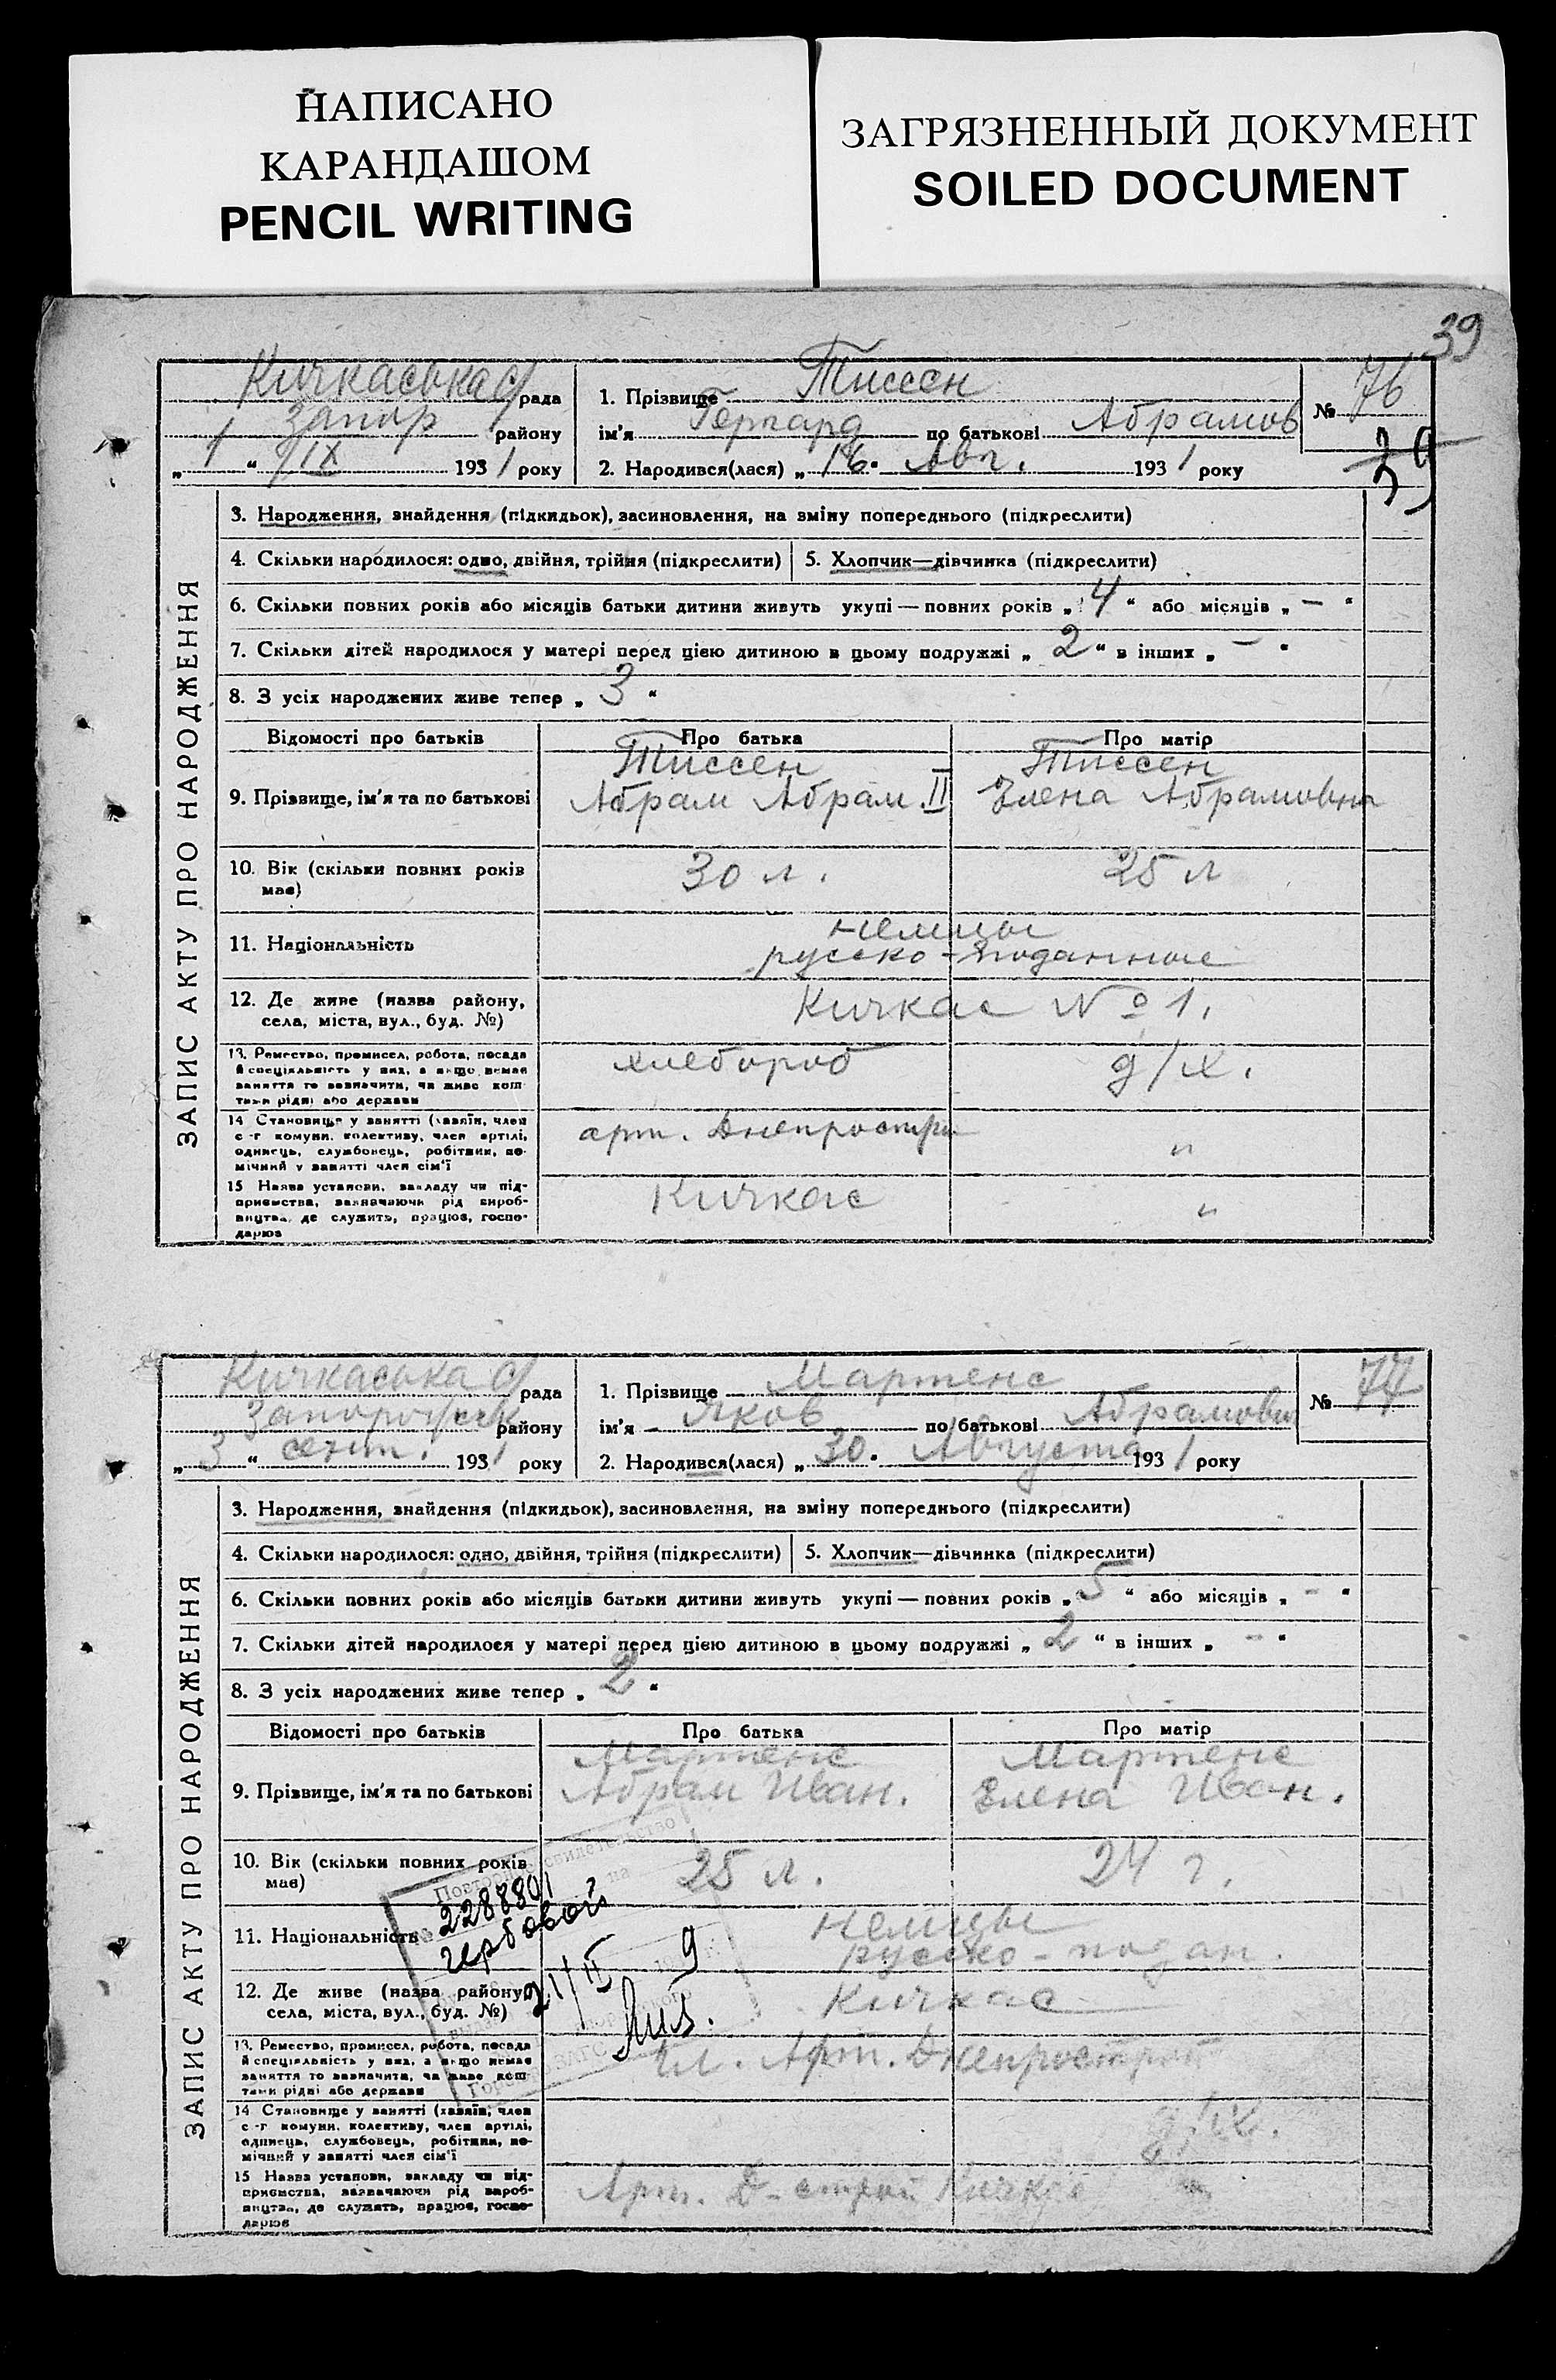 НАПИСАНО
КАРАНДАШОМ
PENCIL WRITING
ЗАГРЯЗНЕННЫЙ ДОКУМЕНТ
SOILED DOCUMENT
39
Кичкаська с/рада
Запор району
„1“ /IX 1931 року
1. Прізвище Тиссен
ім'я Гергард по батькові Абрамов
2. Народився(лася) „16. Авг. 1931 року
№ 76
39
ЗАПИС АКТУ ПРО НАРОДЖЕННЯ
3. Народження, знайдення (підкидьок), засиновлення, на зміну попереднього (підкреслити)
4. Скільки народилося: одно, двійня, трійня (підкреслити) 5. Хлопчик—дівчинка (підкреслити)
6. Скільки повних років або місяців батьки дитини живуть укупі — повних років „4“ або місяців „—“
7. Скільки дітей народилося у матері перед цією дитиною в цьому подружжі „2“ в інших „—“
8. З усіх народжених живе тепер „3“
Відомості про батьків Про батька Про матір
Тиссен Тиссен
9. Прізвище, ім'я та по батькові Абрам Абрам. II Елена Абрамовна
10. Вік (скільки повних років має) 30 л. 25 л
11. Національність немцы
русско-поданные
12. Де живе (назва району, села, міста, вул., буд. №) Кичкас № 1.
13. Ремество, промисел, робота, посада й спеціяльність у них, а якщо немає заняття то зазначити, чи живе коштами рідні або держави хлебороб д/х.
14 Становище у занятті (хазяїн, член с-г комуни, колективу, член артілі, одинець, службовець, робітник, помічний у занятті член сім'ї арт. Днепростри "
15 Назва установи, закладу чи підприємства, зазначаючи рід виробництва, де служить, працює, господарює Кичкас "
Кичкаська с/рада
району
„3“ сент. 1931 року
1. Прізвище Мартенс
ім'я Яков по батькові Абрамович
2. Народився(лася) „30. Августа 1931 року
№ 77
ЗАПИС АКТУ ПРО НАРОДЖЕННЯ
3. Народження, знайдення (підкидьок), засиновлення, на зміну попереднього (підкреслити)
4. Скільки народилося: одно, двійня, трійня (підкреслити) 5. Хлопчик—дівчинка (підкреслити)
6. Скільки повних років або місяців батьки дитини живуть укупі — повних років „5“ або місяців „-“
7. Скільки дітей народилося у матері перед цією дитиною в цьому подружжі „2“ в інших „-“
8. З усіх народжених живе тепер „2“
Відомості про батьків Про батька Про матір
Мартенс Мартенс
9. Прізвище, ім'я та по батькові Абрам Иван. Елена Иван.
10. Вік (скільки повних років має) 25 л. 24 г.
свидетельство
2288801
гербовой
21/II 9
11. Національність Немцы
русско-подан.
12. Де живе (назва району, села, міста, вул., буд. №) Кичкас
13. Ремество, промисел, робота, посада й спеціяльність у них, а якщо немає заняття то зазначити, чи живе коштами рідні або держави чл. Арт. Днепрострой
14 Становище у занятті (хазяїн, член с-г комуни, колективу, член артілі, одинець, службовець, робітник, помічний у занятті член сім'ї д/х.
15 Назва установи, закладу чи підприємства, зазначаючи рід виробництва, де служить, працює, господарює Арт. Д-строй Кичкас "